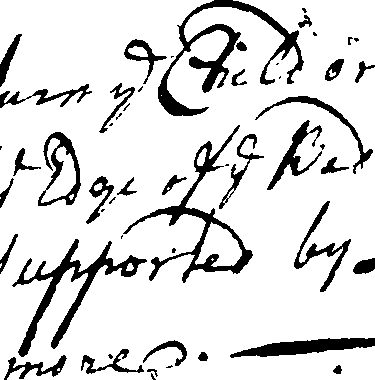 turn yᵉ Child or
yᵉ Edge of yᵉ Bed
supported by
more.